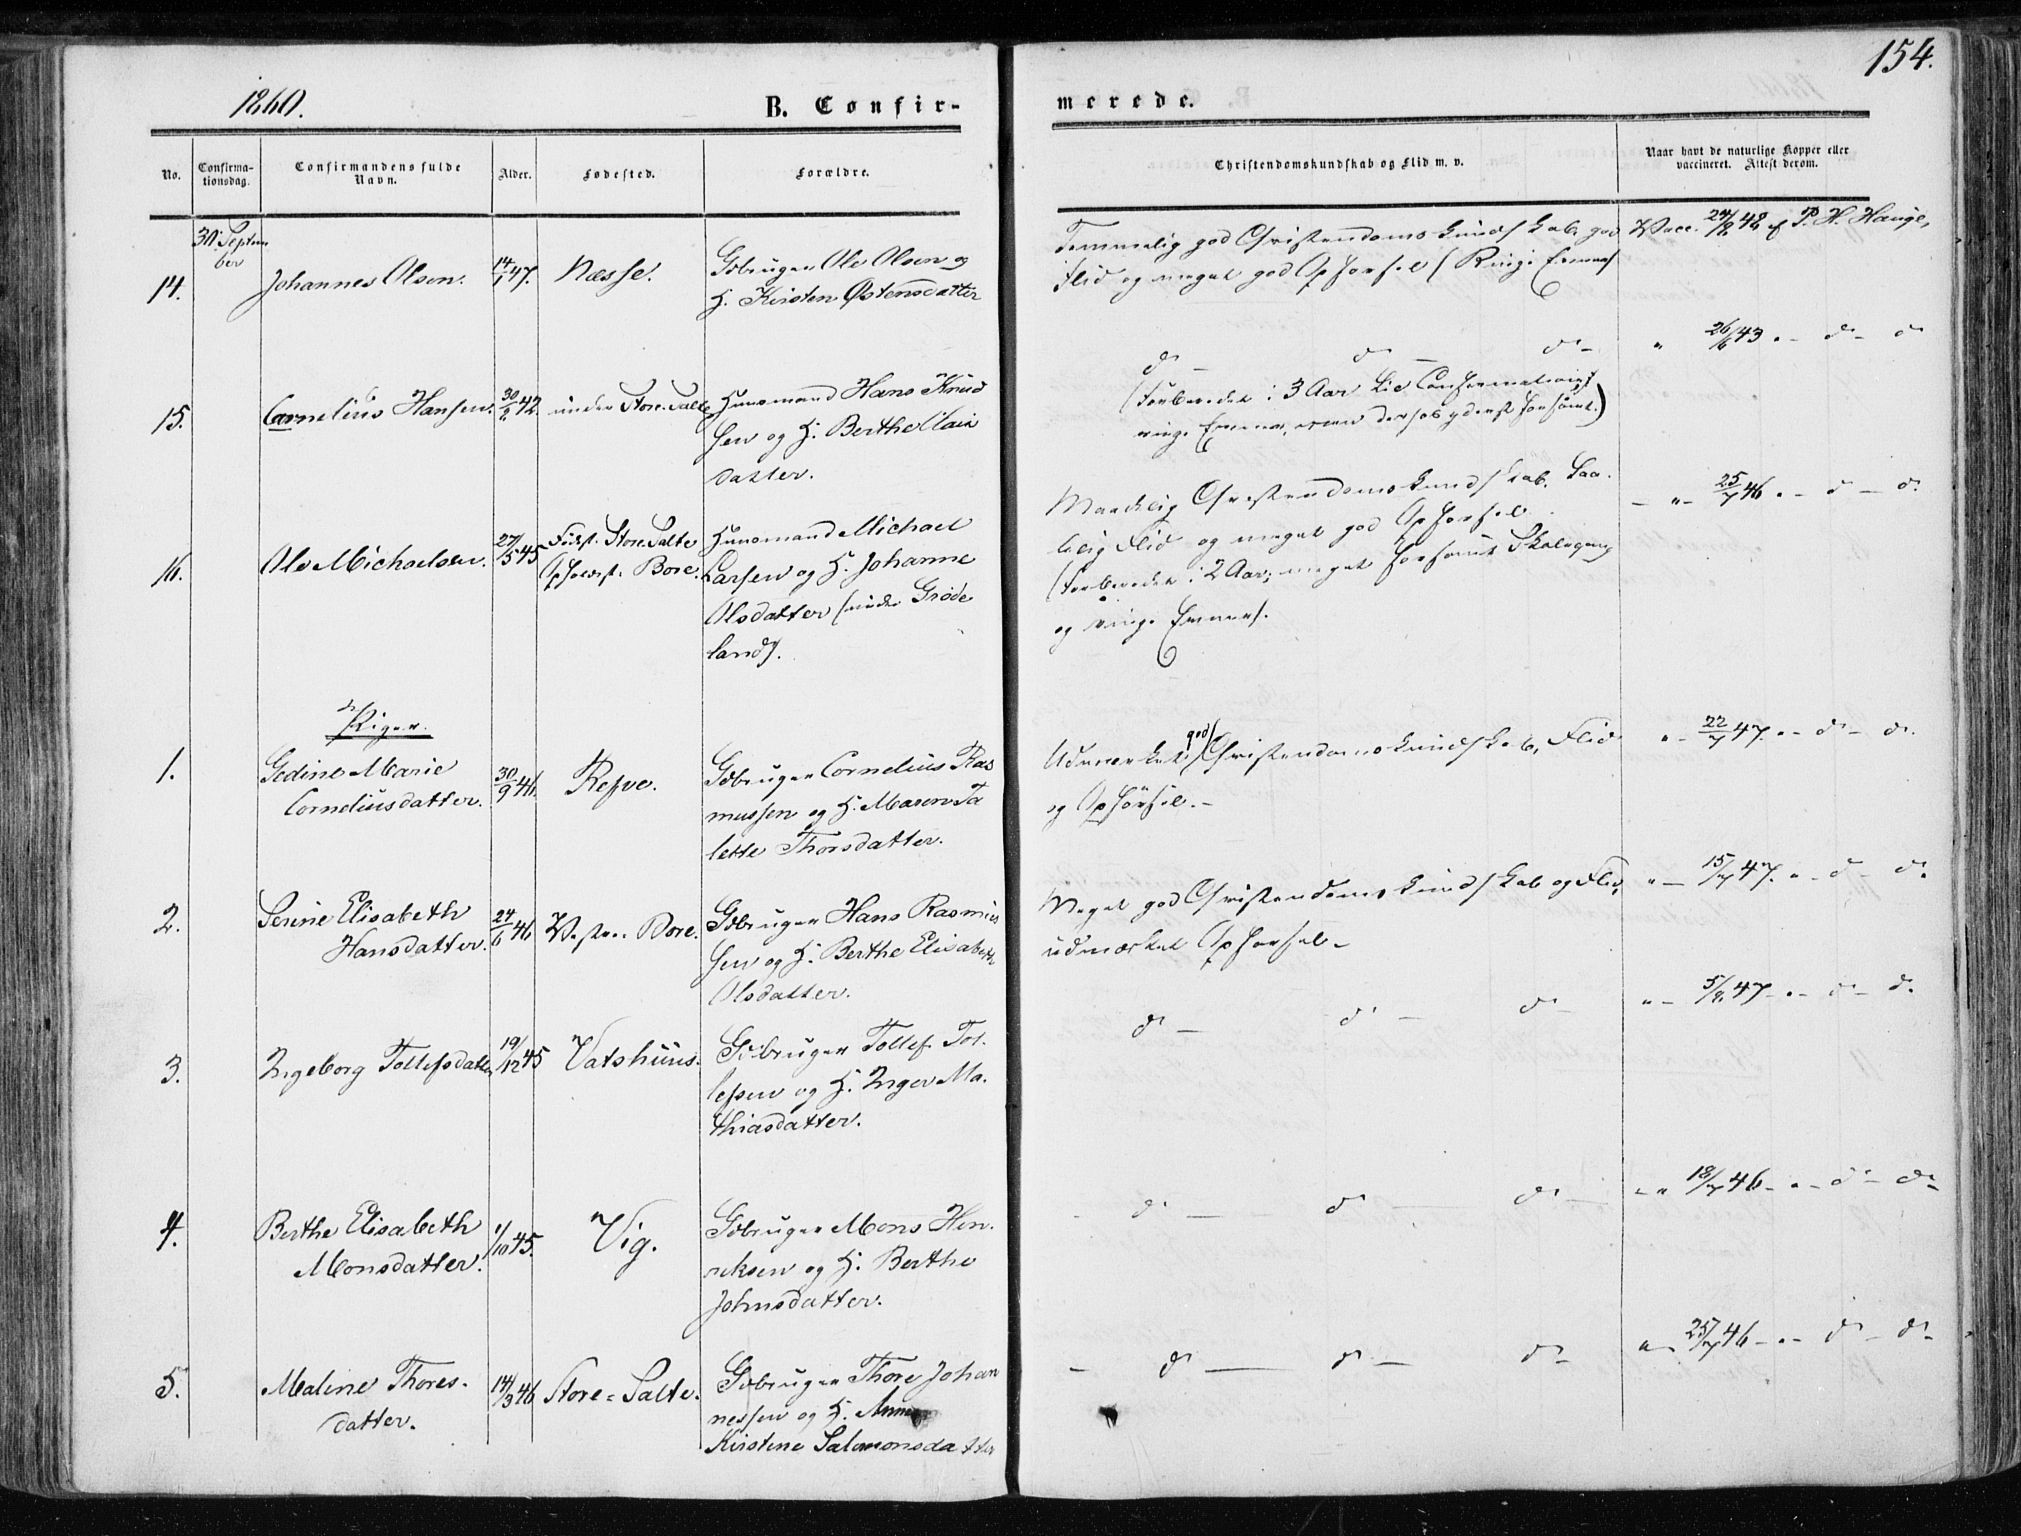 154.
1860.
B. Confir-
merede.
No.
Confirma-
tionsdag.
Confirmandens fulde
Navn.
Alder.
Fødested.
Forældre.
Christendomskundskab og Flid m. v.
Naar havt de naturlige Kopper eller
vaccineret. Attest derom.
30. Septem
ber
14.
Johannes Olsen.
14/1 47.
Næsse.
Gbruger Ole Olsen og
H. Kirsten Østensdatter
Temmelig god Christendomskundskab, god
Flid og meget god Opførsel (Ringe Evner)
Vacc. 24/8 48 af P. H. Hauge,
15.
Cornelius Hansen.
42.
under Store Salte
Huusmand Hans Knud
sen og H. Berthe
datter.
d° - d° - d° -
(Forberedet i 3 Aar til Confirmation;
ringe Evner, men derhos yderst forsømt.)
" 26/6 43 " - d° - d°
16.
Ole Michaelsen.
27/5 45
Fødest. Store Salte
Opholdst. Bore.
Huusmand Michael
Larsen og H. Johanne
Olsdatter (under Grøde
land).
Maadelig Christendomskundskab. Taa-
lelig Flid og meget god Opførsel
(Forberedet i 2 Aar; meget forsømt Skolegang
og ringe Evner).
- " - 25/7 46 " - d° - d°.
Piger.
1.
Gedine Marie
Corneliusdatter.
30/9 46.
Refve.
Gbruger Cornelius Ras
mussen og H. Maren Ta
lette Thorsdatter.
Udmærket god Christendomskundskab, Flid
og Opførsel. -
" - 22/7 47. " - d° - d°.
2.
Serine Elisabeth
Hansdatter.
24/6 46
Vestre Bore.
Gbruger Hans Rasmus
sen og H. Berthe Elisabeth
Olsdatter.
Meget god Christendomskundskab og Flid,
udmærket Opførsel -
" - 15/7 47. " - d° - d°.
3.
Ingeborg Tollefsdatter
19/12 45
Vatshuus.
Gbruger Tollef Tol-
lefsen og H. Inger Ma-
thiasdatter.
d° - d° - d° -
" - 5/8 47 - " - d° - d°.
4.
Berthe Elisabeth
Monsdatter.
1/10 45.
Vig.
Gbruger Mons Hen-
riksen og H. Berthe
Johnsdatter.
- d° - d° - d° -
" " 18/7 46 - " - d° - d° -
5.
Maline Thores-
datter.
14/3 46
Store-Salte.
Gbruger Thore Johan
nessen og H. Anne
Kirstine Salomonsdatter
- d° - d° - d° -
" - 25/7 46 - " - d° - d° -